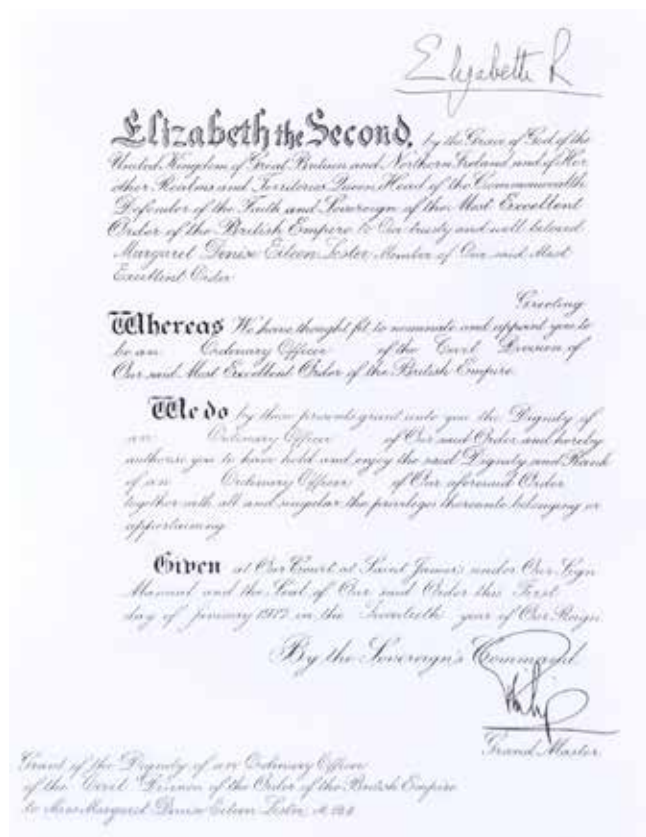 Elizabeth R
Elizabeth the Second, by the Grace of God of the
United Kingdom of Great Britain and Northern Ireland and of Her
other Realms and Territories Queen, Head of the Commonwealth
Defender of the Faith and Sovereign of the Most Excellent
Order of the British Empire to Our trusty and well beloved
Margaret Denise Eileen Lester Member of Our said Most
Excellent Order
Greeting
Whereas We have thought fit to nominate and appoint you to
be an Ordinary Officer of the Civil Division of
Our said Most Excellent Order of the British Empire
We do by these presents grant unto you the Dignity of
an Ordinary Officer of Our said Order and hereby
authorise you to have hold and enjoy the said Dignity and Rank
of an Ordinary Officer of Our aforesaid Order
together with all and singular the privileges thereunto belonging or
appertaining
Given at Our Court at Saint James's under Our Sign
Manual and the Seal of Our said Order this First
day of January in the year of Our Reign
By the Sovereign's Command
Philip
Grand Master
Grant of the Dignity of an Ordinary Officer
of the Civil Division of the Order of the British Empire
to Miss Margaret Denise Eileen Lester